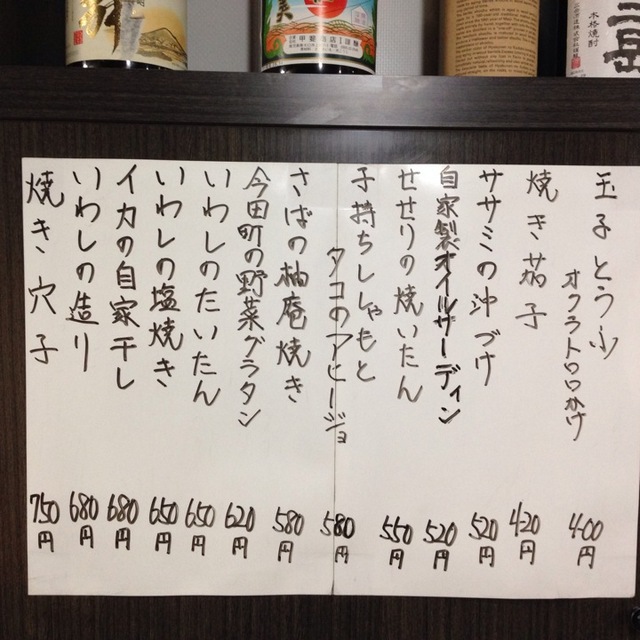 本格焼酎
玉子とうふ
オクラトロロかけ 400円
焼き茄子 420円
ササミの沖づけ 520円
自家製オイルサーディン 520円
せせりの焼いたん 550円
子持ちししゃもと
タコのアヒージョ 580円
さばの柚庵焼き 580円
今田町の野菜グラタン 620円
いわしのたいたん 650円
いわしの塩焼き 650円
イカの自家干し 680円
いわしの造り 680円
焼き穴子 750円